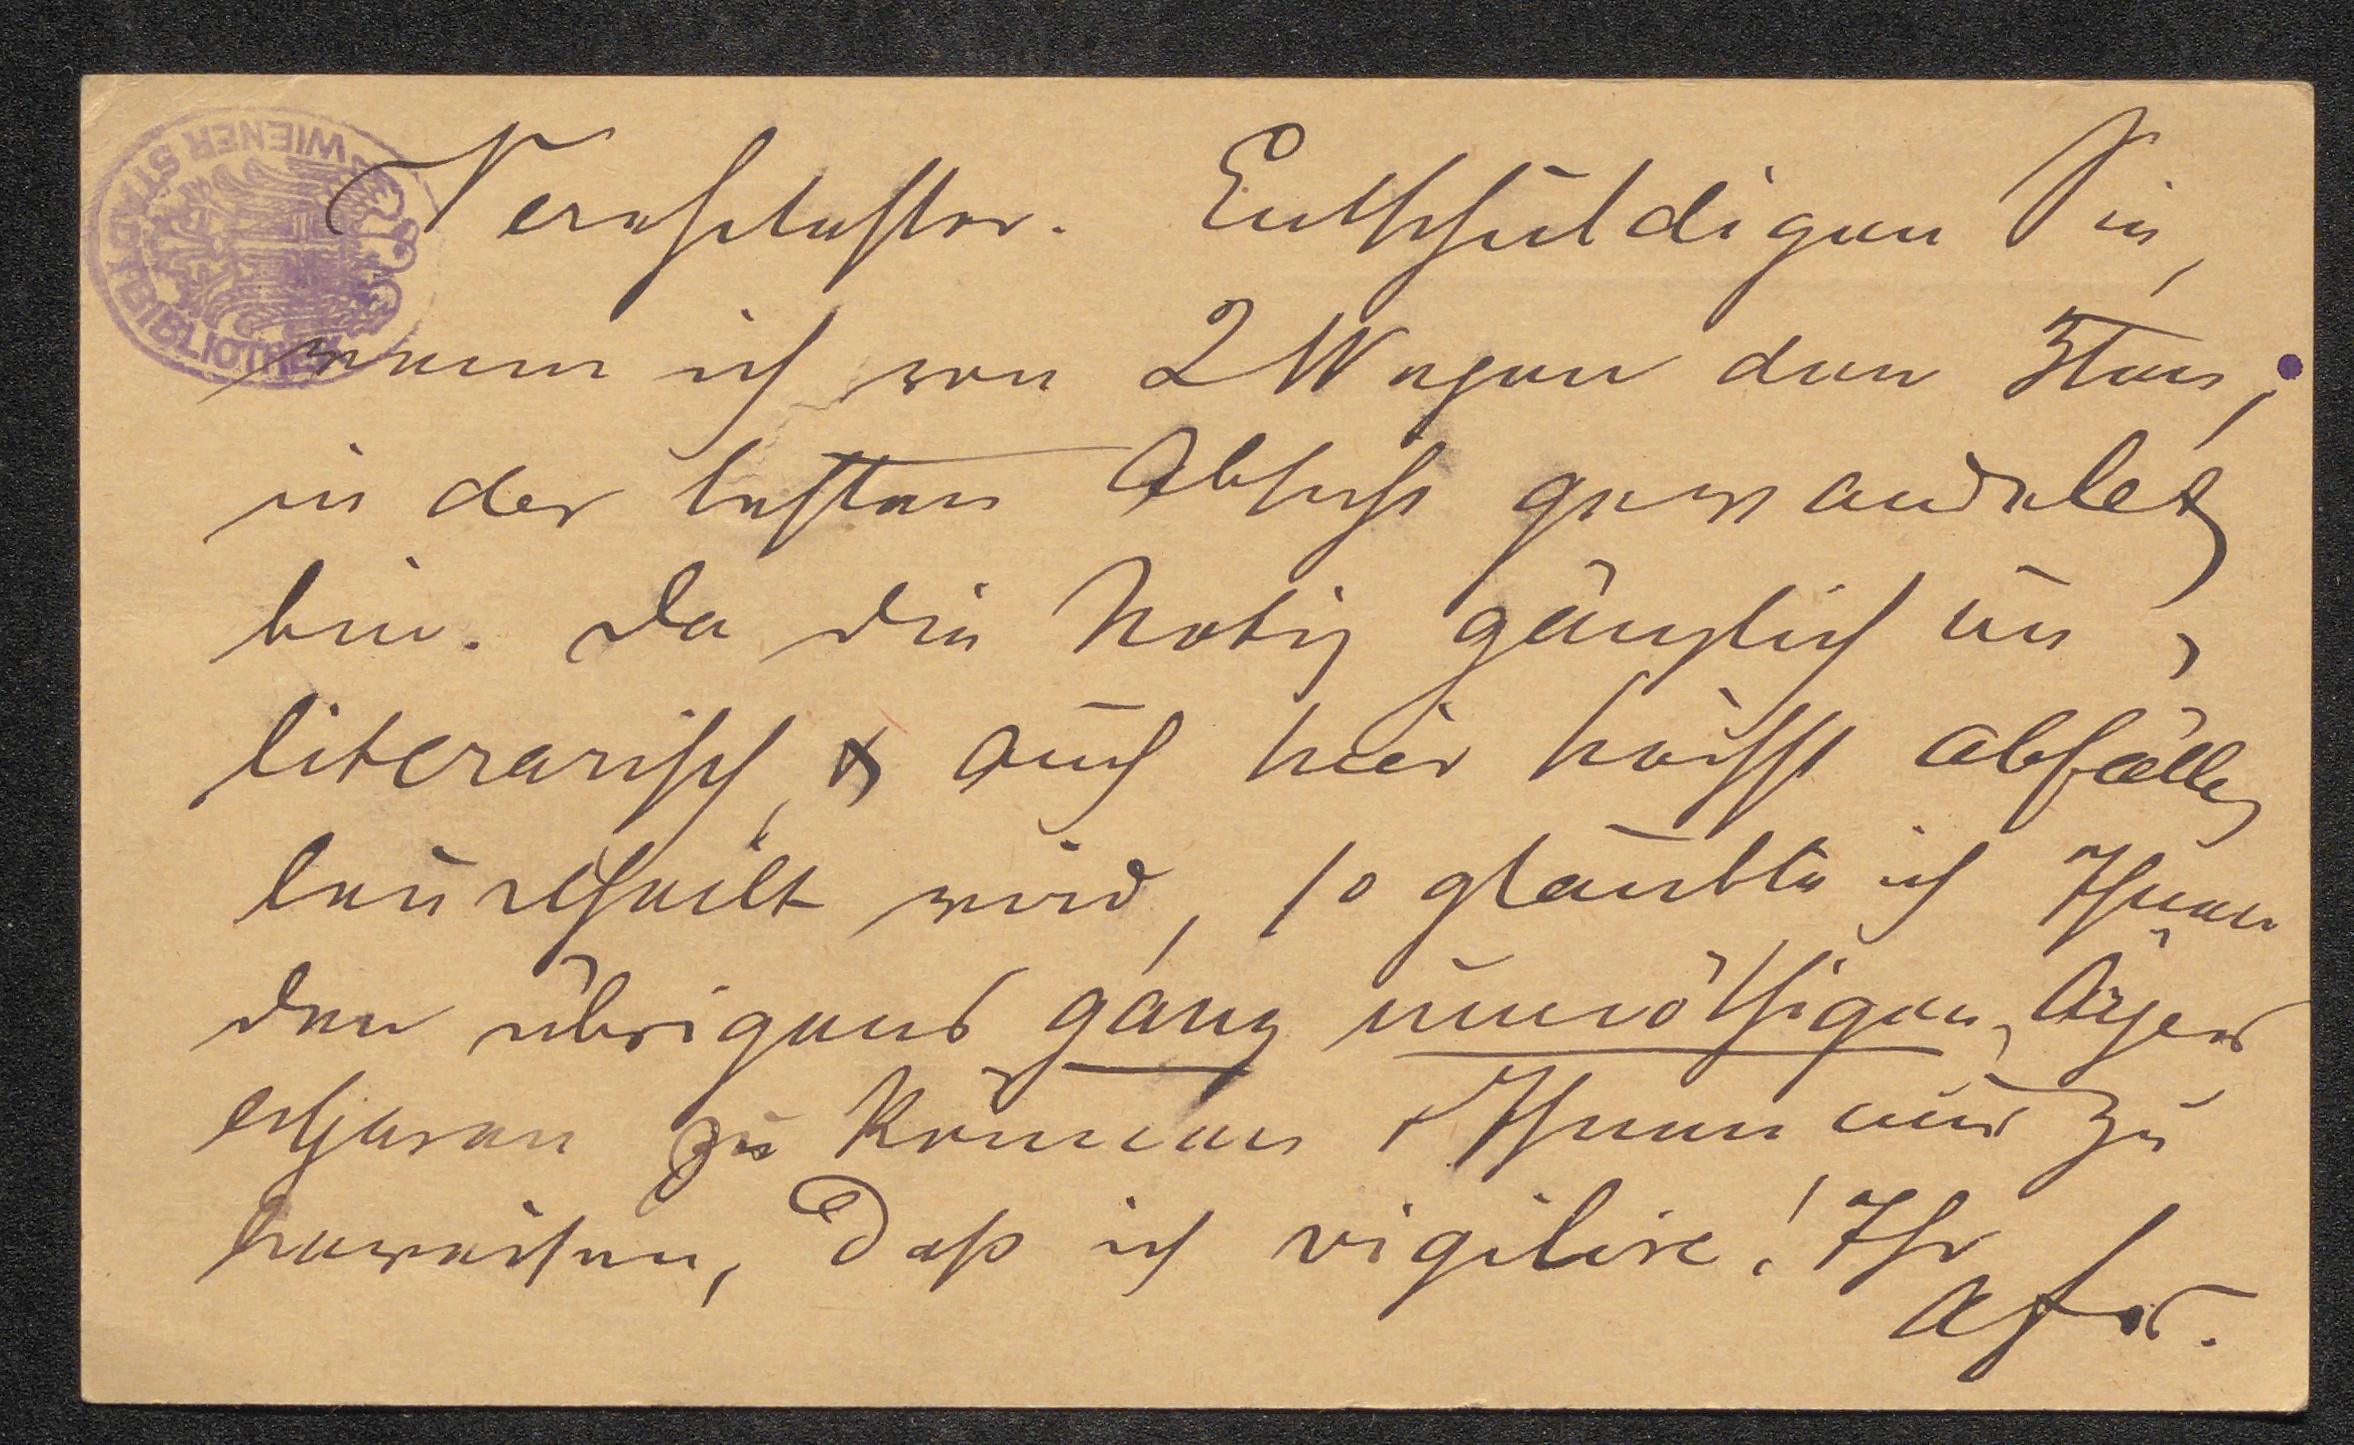 WIENER STADTBIBLIOTHEK
Verehrtester. Entschuldigen Sie,
wenn ich von 2 Wegen den 3ten,
in der besten Absicht gewandelt
bin. Da die Notiz gänzlich un-
literarisch, & auch hier höchst abfällig
beurtheilt wird, so glaubte ich Ihnen
den übrigens ganz unnöthigen Ärger
ersparen zu können & Ihnen nur zu
beweisen, daß ich vigilire! Ihr